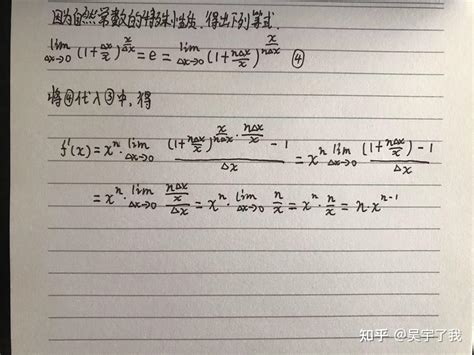 因为自然常数的特殊性质,得出下列等式
lim Δx→0 (1+Δx/x)^(x/Δx) = e = lim Δx→0 (1+nΔx/x)^(x/nΔx) ④
将④代入③中,得
f'(x)=x^n · lim Δx→0 ((1+nΔx/x)^(x/nΔx · nΔx/x) −1)/Δx = x^n lim Δx→0 ((1+nΔx/x)−1)/Δx
= x^n · lim Δx→0 (nΔx/x)/Δx = x^n · lim Δx→0 n/x = x^n · n/x = n·x^(n−1)
知乎 @吴宇了我